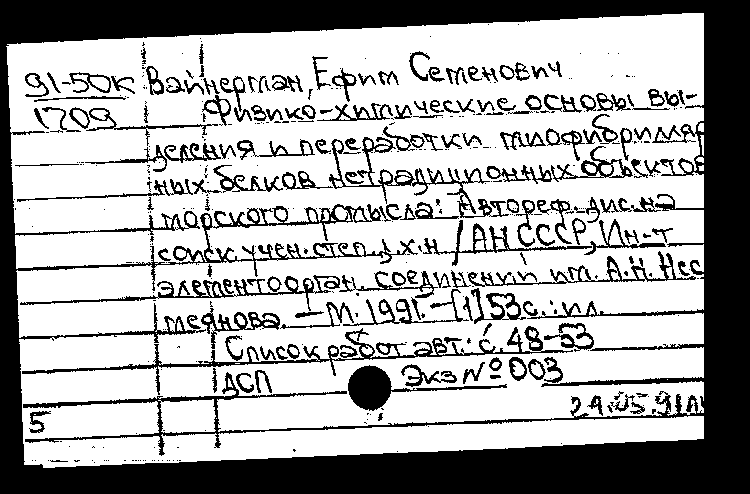 91-50к Вайнерман, Ефим Семенович
1709 Физико-химические основы вы-
деления и переработки миофибрилляр
ных белков нетрадиционных объектов
морского промысла: Автореф. дис. на
соиск. учен. степ. д.х.н / АН СССР, Ин-т
элементоорган. соединений им. А.Н. Нес
меянова. — М. 1991. — [1] 53 с. : ил.
Список работ авт.: с. 48-53
ДСП Экз № 003
5 24.05.91